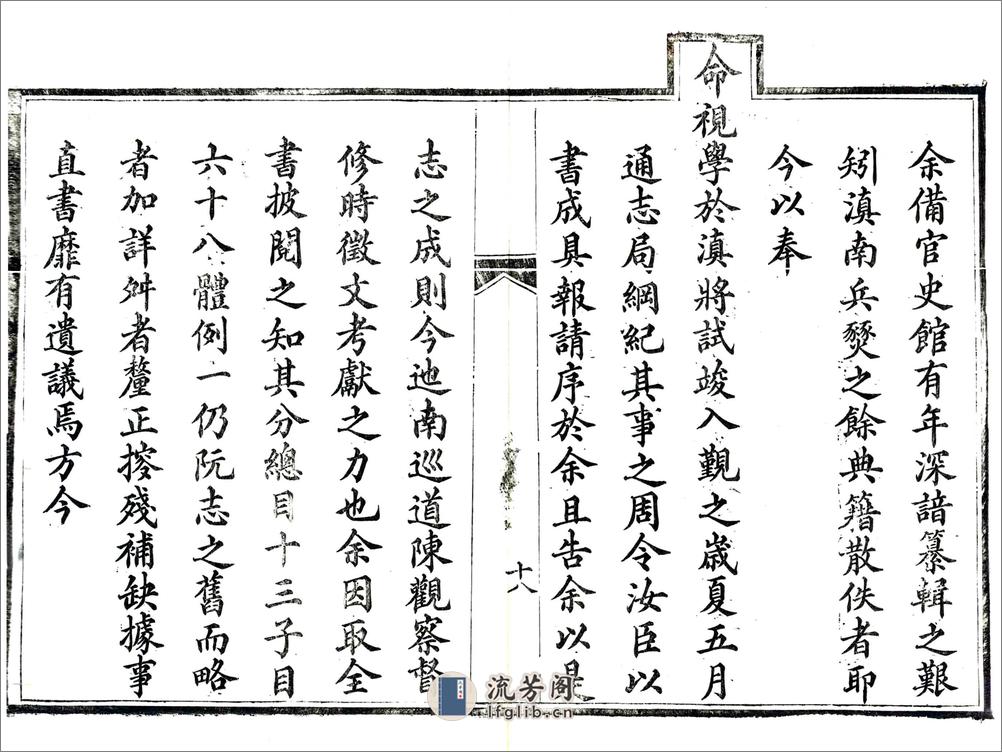 余備官史館有年深諳纂輯之艱
矧滇南兵燹之餘典籍散佚者耶
今以奉
命視學於滇將試竣入覲之歲夏五月
通志局綱紀其事之周令汝臣以
書成具報請序於余且告余以是
十八
志之成則今迆南巡道陳觀察督
修時徵文考獻之力也余因取全
書披閱之知其分總目十三子目
六十八體例一仍阮志之舊而略
者加詳舛者釐正摉殘補缺據事
直書靡有遺議焉方今
流芳阁
lfglib.cn